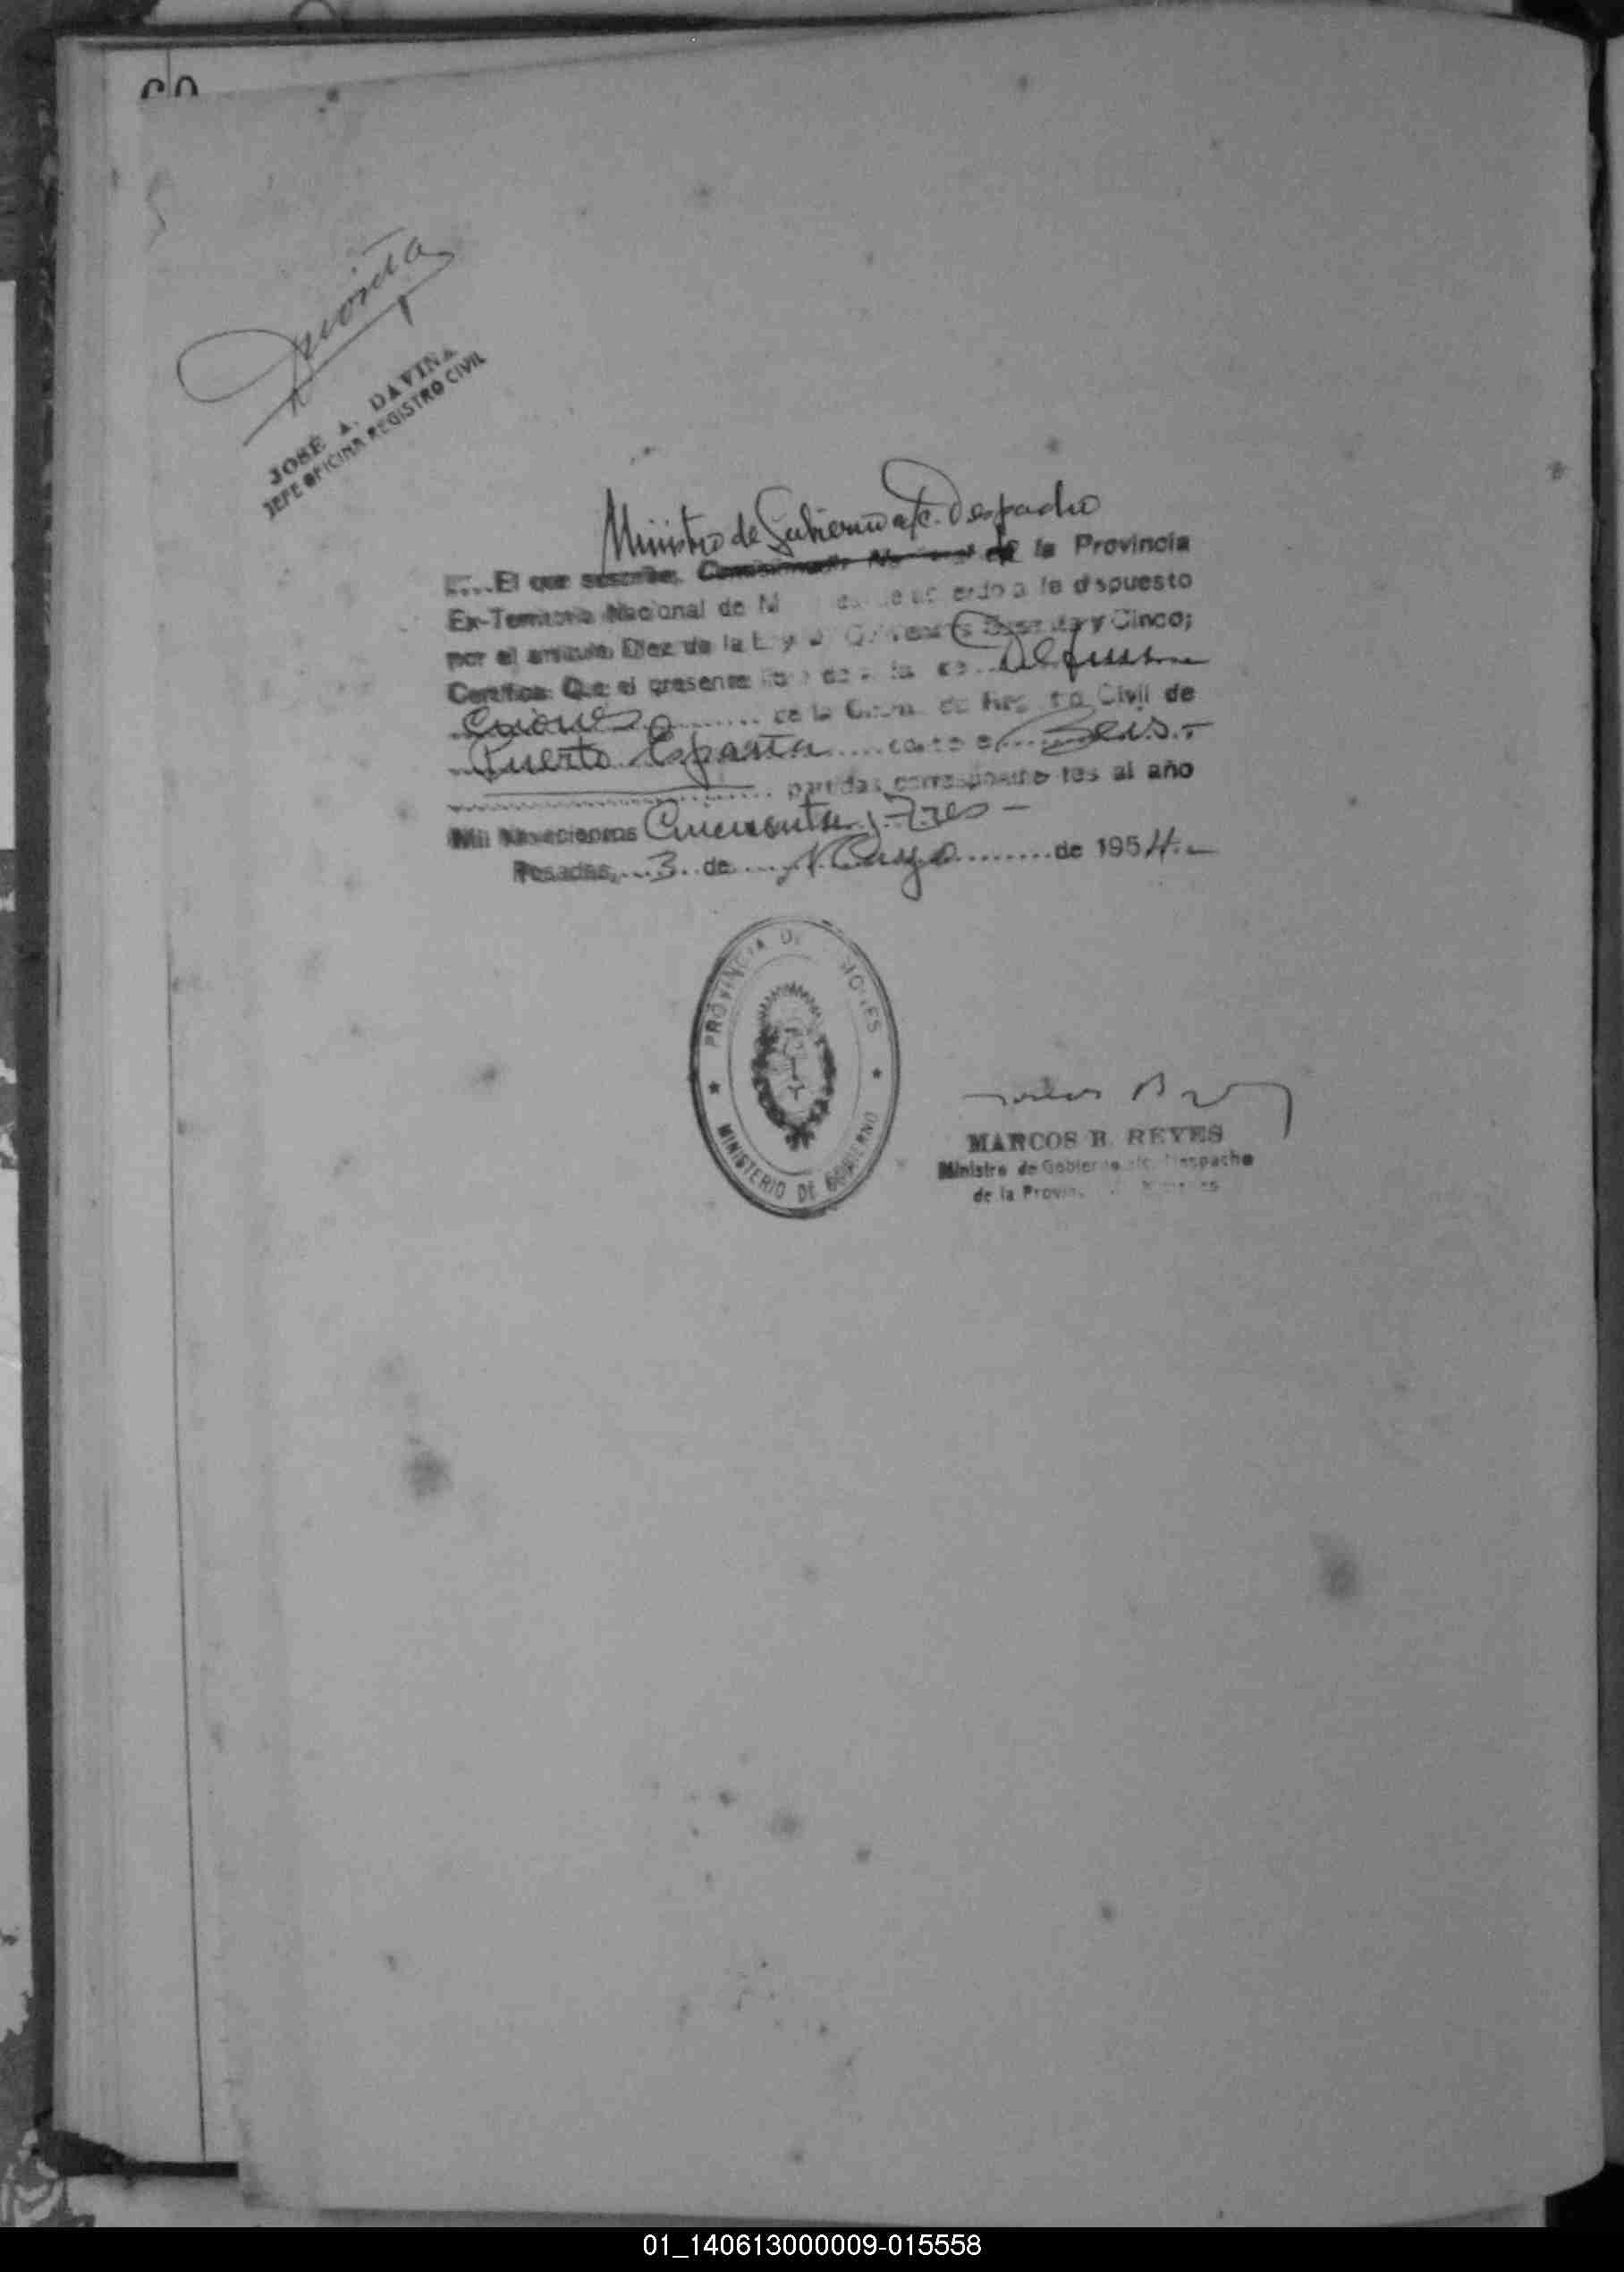 JOSÉ A. DAVIÑA
JEFE OFICINA REGISTRO CIVIL
Ministro de Gobierno a/c. Despacho
El que suscribe, la Provincia
Ex-Territorio Nacional de a lo dispuesto
por el artículo Diez de la y Cinco;
Certifica: Que el presente Defun
ciones de la de Registro Civil de
Puerto España Seis.-
partidas correspondientes al año
Mil Novecientos Cincuenta y Tres -
Posadas, 3 de Mayo de 1954.-
PROVINCIA DE MISIONES
MINISTERIO DE GOBIERNO
MARCOS B. REYES
Ministro de Gobierno a/c. Despacho
de la Provincia
01_140613000009-015558